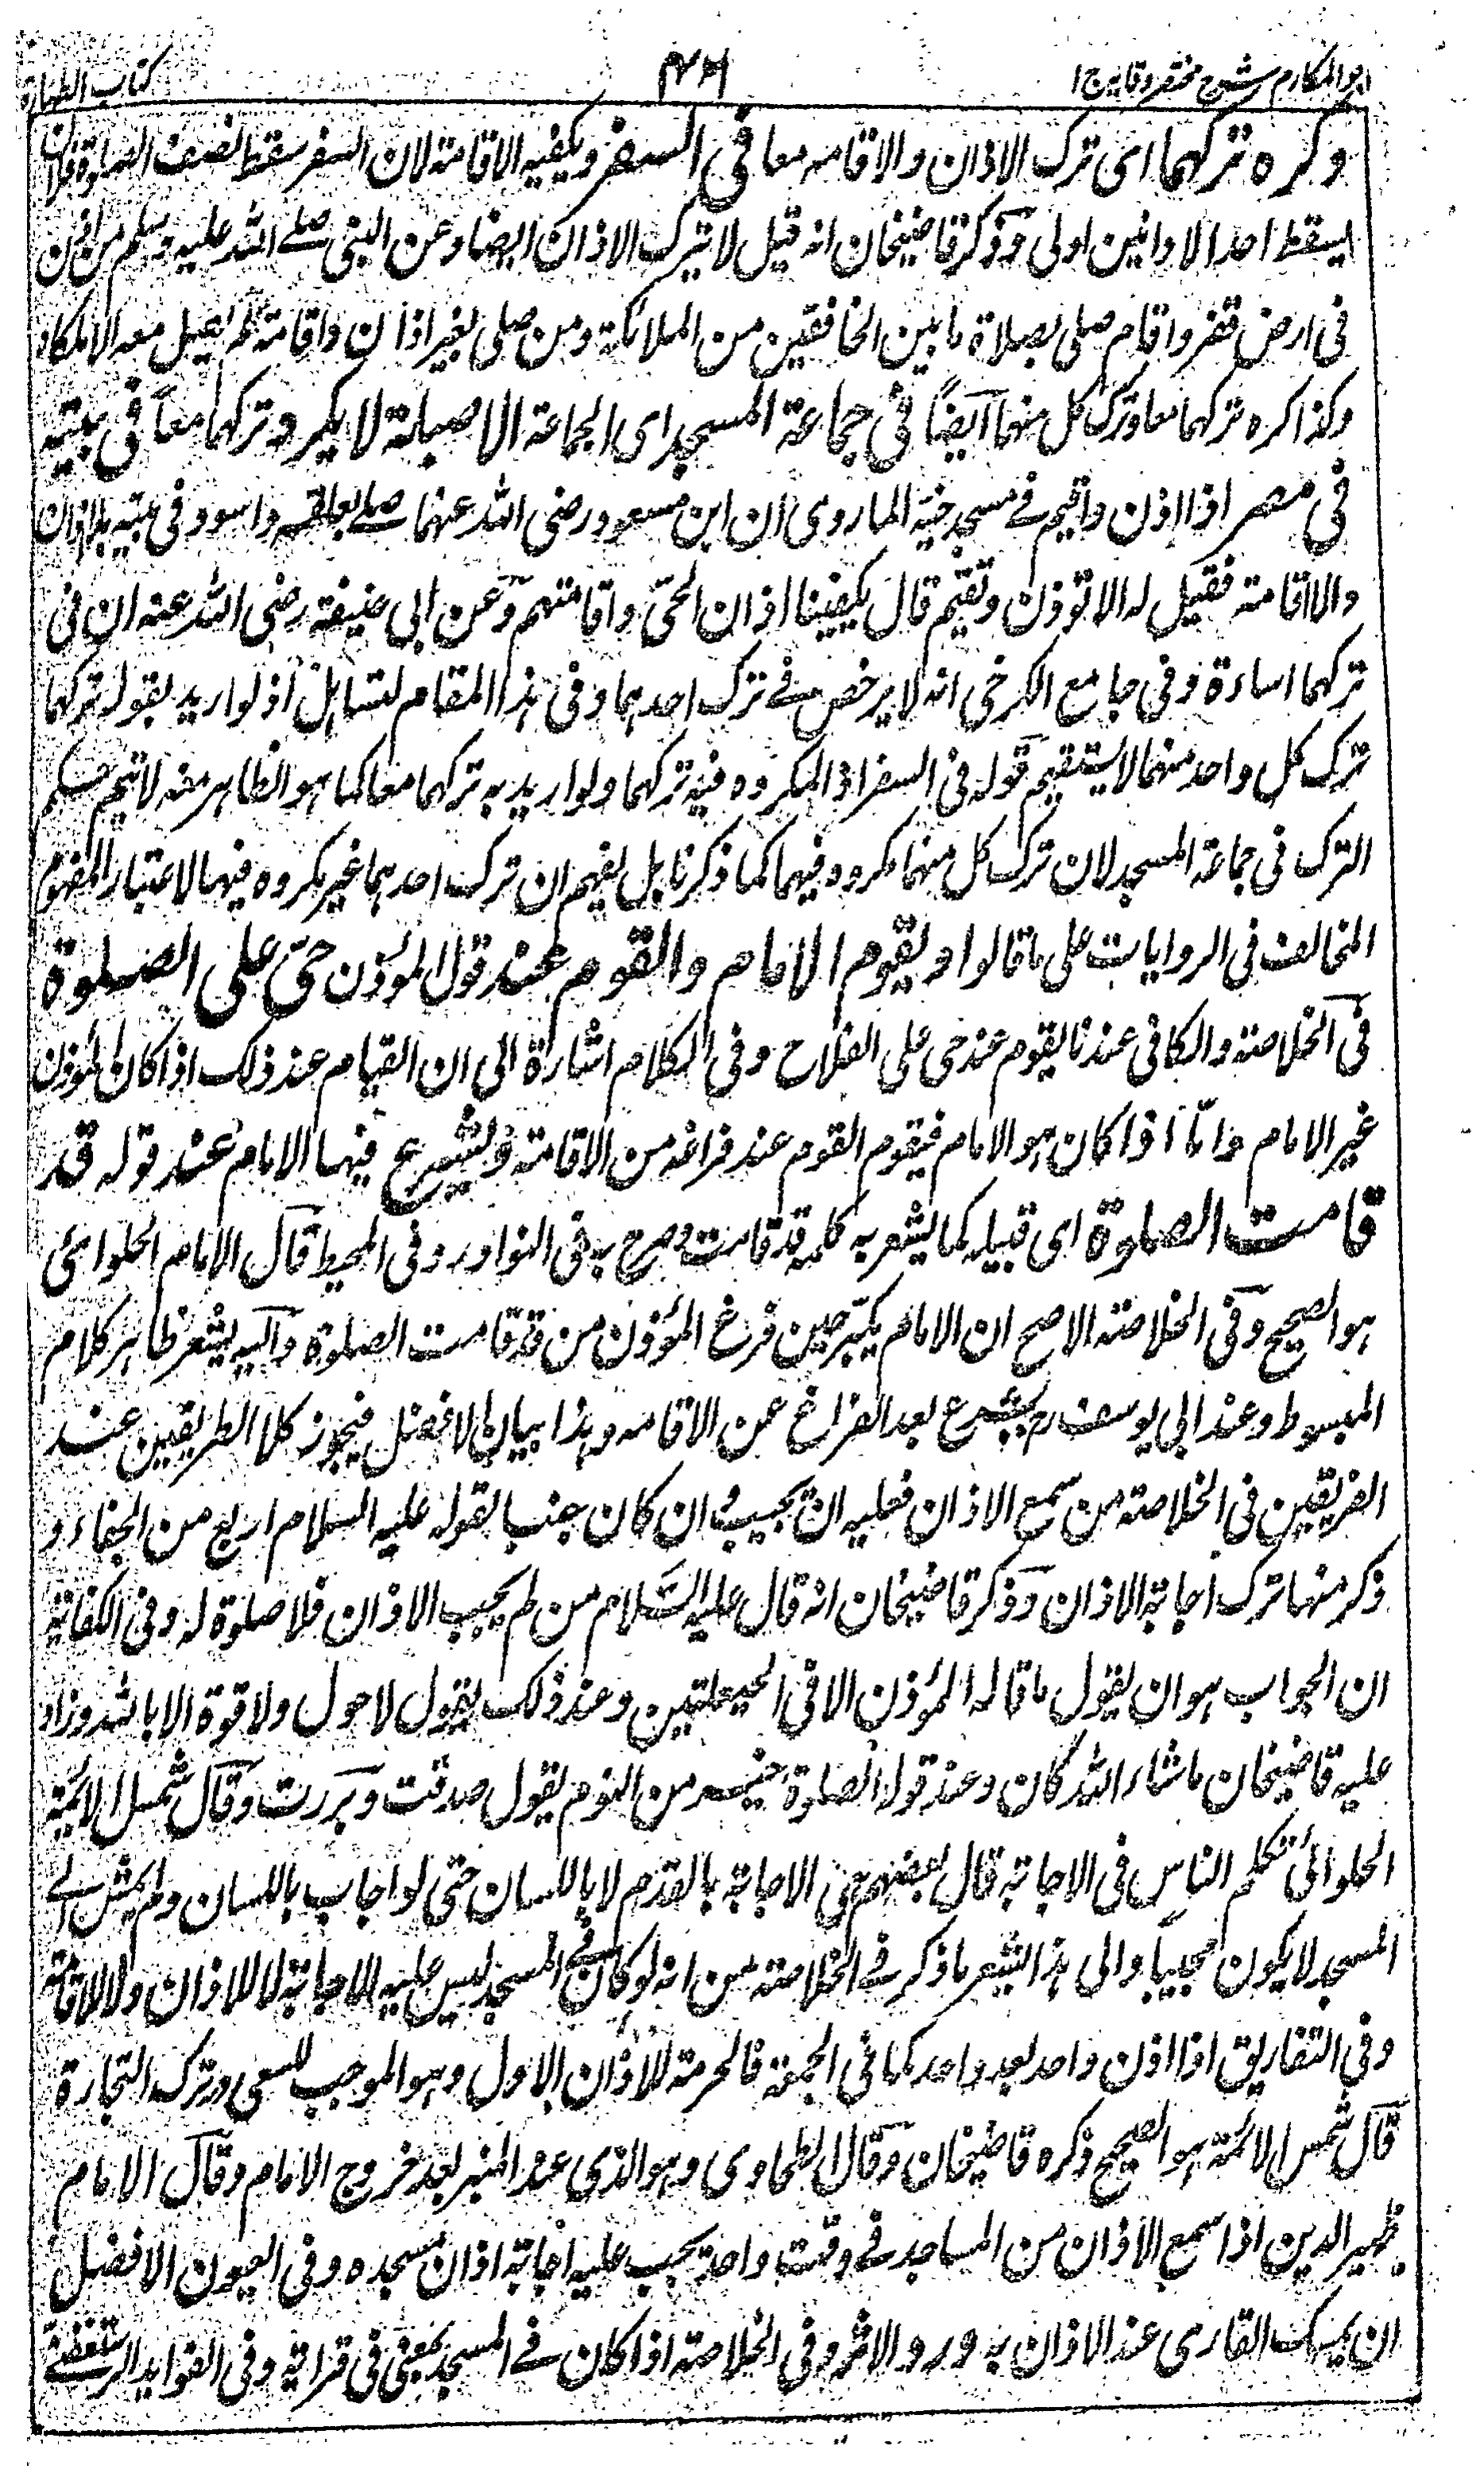 ابو المکارم شرح مختصر وقایہ ج ۱
کتاب الطہارة
وکره ترکہما ای ترک الاذان والاقامہ معا فی السفر ویکفیہ الاقامۃ لان السفر سقط نصف الصلوة فلان
یسقط احد الاذانین اولی وذکر قاضیخان انہ قیل لا یترک الاذان ایضا وعن النبی صلے اللہ علیہ وسلم من اذن
فی ارض قفر واقام صلی بصلاة ما بین الخافقین من الملائکۃ ومن صلی بغیر اذان واقامۃ لم یصل معہ الا ملکاه
وکذا کره ترکہما معا وترک کل منہما ایضاً فی جماعۃ المسجد ای الجماعۃ الاصلیۃ لا یکره ترکہما معا فی بیتہ
فی مصر اذا اذن واقیم فے مسجد حیہ لما روی ان ابن مسعود رضی اللہ عنہما صلے بعلقمہ واسود فی بیتہ بلا اذان
والا اقامۃ فقیل لہ الا تؤذن وتقیم قال یکفینا اذان الحیّ واقامتہم وعن ابی حنیفۃ رضی اللہ عنہ ان فی
ترکہما اساءة وفی جامع الکرخی انہ لا یرخص فے ترک احدہما وفی ہذا المقام تساہل اذ لو ارید بقولہ ترکہما
ترک کل واحد منہما لا یستقیم قولہ فی السفر اذ المکروه فیہ ترکہما ولو ارید بہ ترکہما معا کما ہو الظاہر منہ لا یتم حکم
الترک فی جماعۃ المسجد لان ترک کل منہما مکروه فیہا کما ذکرنا بل یفہم ان ترک احدہما غیر مکروه فیہا لاعتبار المفہوم
المخالف فی الروایات علی ما قالوا ویقوم الامام والقوم عند قول المؤذن حیّ علی الصلوة
فی الخلاصۃ والکافی عندنا یقوم عند حی علی الفلاح وفی الکلام اشارة الی ان القیام عند ذلک اذا کان المؤذن
غیر الامام واما اذا کان ہو الامام فیقوم القوم عند فراغہ من الاقامۃ ویشرع فیہا الامام عند قولہ قد
قامت الصلوة ای قبیلہ کما یشعر بہ کلمۃ قد قامت وصرح بہ فی النوادر وفی المحیط قال الامام الحلوائی
ہو الصحیح وفی الخلاصۃ الاصح ان الامام یکبر حین فرغ المؤذن من قد قامت الصلوة والیہ یشعر ظاہر کلام
المبسوط وعند ابی یوسف رح یشرع بعد الفراغ عن الاقامہ وہذا بیان الافضل فیجوز کلا الطریقین عند
الفریقین فی الخلاصۃ من سمع الاذان فعلیہ ان یجیب وان کان جنبا لقولہ علیہ السلام اربع من الجفاء و
ذکر منہا ترک اجابۃ الاذان وذکر قاضیخان انہ قال علیہ السلام من لم یجب الاذان فلا صلوة لہ وفی الکفایۃ
ان الجواب ہو ان یقول ما قالہ المؤذن الا فی الحیعلتین وعند ذلک یقول لا حول ولا قوة الا باللہ وزاد
علیہ قاضیخان ما شاء اللہ کان وعند قولہ الصلوة خیر من النوم یقول صدقت وبررت وقال شمس الائمۃ
الحلوائی تکلم الناس فی الاجابۃ قال بعضہم ہی الاجابۃ بالقدم لا باللسان حتی لو اجاب باللسان ولم یمش الے
المسجد لا یکون مجیباً والی ہذا یشعر ما ذکر فے الخلاصۃ من انہ لو کان فے المسجد لیس علیہ الاجابۃ لا للاذان ولا للاقامۃ
وفی التفاریق اذا اذن واحد بعد واحد کما فی الجمعۃ فالحرمۃ للاذان الاول وہو الموجب للسعی وترک التجارة
قال شمس الائمۃ ہو الصحیح ذکره قاضیخان وقال الطحاوی وہو الذی عند المنبر بعد خروج الامام وقال الامام
ظہیر الدین اذا سمع الاذان من المساجد فے وقت واحد یجب علیہ اجابۃ اذان مسجده وفی العیون الافضل
ان یمسک القاری عند الاذان بہ ورد الاثر وفی الخلاصۃ اذا کان فے المسجد یمضی فی قراتہ وفی الفواید الرستغفنی